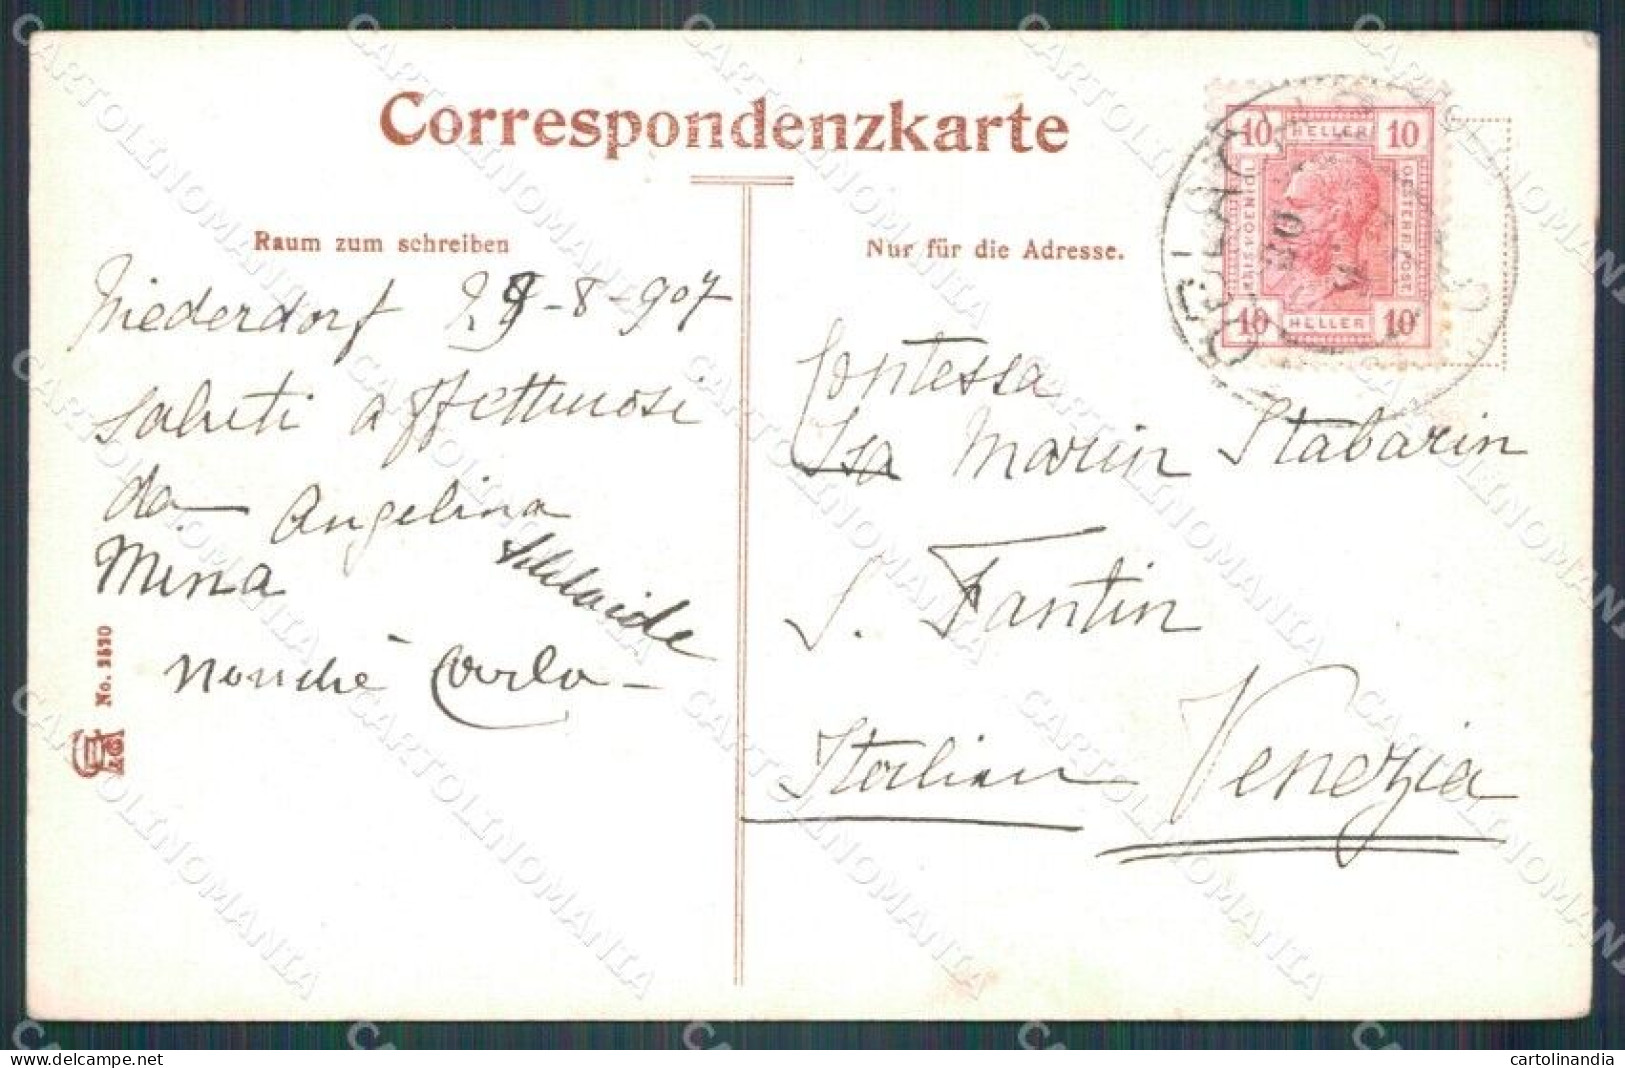 Correspondenzkarte
Raum zum schreiben
Nur für die Adresse.
10 HELLER 10
KAIS. KOENIGL.
OESTERR. POST
10 HELLER 10
Niederdorf 29-8-907
saluti affettuosi
da Angelina
Mina Adelaide
nonché Carlo
Contessa
Isa Marin Stabarin
S. Fantin
Venezia
No. 2570
CARTOLINOMANIA
cartolinandia